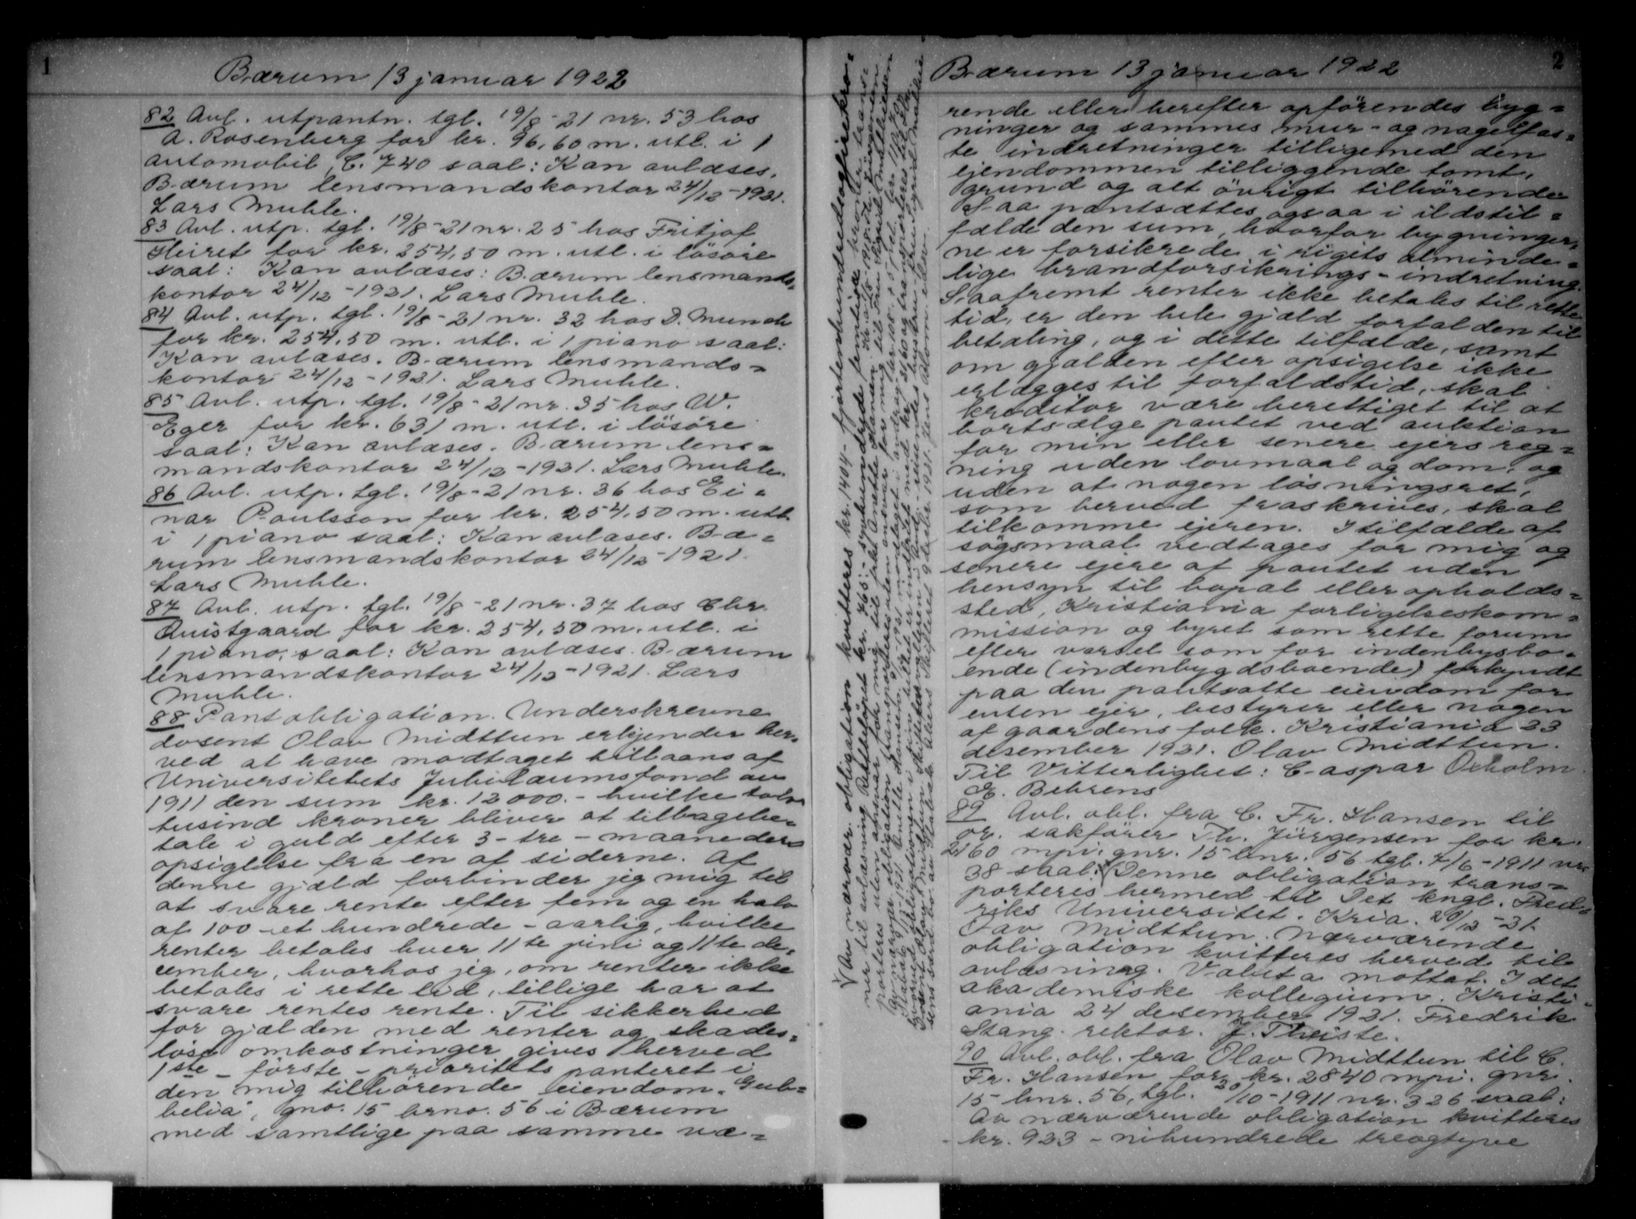 1
Bærum 13 januar 1922
82 Avl. utpantn. tgl. 19/8-21 nr. 53 hos
A. Rosenberg for kr. 96,60 m. utl. i 1
automobil, C. 740 saal: Kan avlæses.
Bærum lensmandskontor 24/12-1921.
Lars Muhle.
83 Avl. utp. tgl. 19/8-21 nr. 25 hos Fritjof
Heiret for kr. 254,50 m. utl. i lösöre
saal: Kan avlæses: Bærum lensmands-
kontor 24/12-1921. Lars Muhle.
84 Avl. utp. tgl. 19/8-21 nr. 32 hos D. Munch
for kr. 254,50 m. utl. i 1 piano saal:
Kan avlæses. Bærum lensmands=
kontor 24/12-1921. Lars Muhle.
85 Avl. utp. tgl. 19/8-21 nr. 35 hos W.
Eger for kr. 631 m. utl. i lösöre
saal: Kan avlæses. Bærum lens=
mandskontor 24/12-1921. Lars Muhle.
86 Avl. utp. tgl. 19/8-21 nr. 36 hos Ei=
nar Paulsson for kr. 254,50 m. utl.
i 1 piano saal: Kan avlæses. Bæ=
rum lensmandskontor 24/12-1921.
Lars Muhle.
87 Avl. utp. tgl. 19/8-21 nr. 37 hos Chr.
Quistgaard for kr. 254,50 m. utl. i
1 piano, saal: Kan avlæses. Bærum
lensmandskontor 24/12-1921. Lars
Muhle.
88 Pantobligation. Underskrevne
dosent Olav Midttun erkjender her=
ved at have modtaget tillaans af
Universitetets Jubilæumsfond av
1911 den sum kr. 12000.- hvilke tolv
tusind kroner bliver at tilbagebe=
tale i guld efter 3-tre-maaneders
opsigelse fra en af siderne. Af
denne gjæld forbinder jeg mig til
at svare rente efter fem og en halv
af 100 -et hundrede- aarlig, hvilke
renter betales hver 11te juni og 11te de=
cember, hvorhos jeg, om renter ikke
betales i rette tid, tillige har at
svare rentes rente. Til sikkerhed
for gjælden med renter og skades=
löse omkostninger gives herved
1ste - förste - prioritets panteret i
den mig tilhörende eiendom "
belia", gno. 15 brno. 56 i Bærum
med samtlige paa samme væ=
2
Bærum 13 januar 1922
rende eller herefter opförendes byg=
ninger og sammes mur- og nagelfas=
te indretninger tilligemed den
ejendommen tilliggende tomt,
grund og alt övrigt tilhörende.
Saa pantsættes ogsaa i ildstil=
fælde den sum, hvorfor bygninger=
ne er forsikrede i rigets alminde=
lige brandforsikrings-indretning.
Saafremt renter ikke betales til rette
tid, er den hele gjæld forfalden til
betaling, og i dette tilfælde, samt
om gjælden efter opsigelse ikke
erlægges til forfaldstid, skal
kreditor være berettiget til at
bortsælge pantet ved auktion
for min eller senere ejers reg=
ning uden lovmaal og dom, og
uden at nogen lösningsret,
som herved fraskrives, skal
tilkomme ejeren. I tilfælde af
sögsmaal vedtages for mig og
senere ejere af pantet uden
hensyn til bopæl eller opholds=
sted, Kristiania forligelseskom=
mission og byret som rette forum
efter varsel som for indenbysbo=
ende (indenbygdsboende) forkyndt
paa den pantsatte eiendom for
enten ejer, bestyrer eller nogen
af gaardens folk. Kristiania 23
desember 1921. Olav Midttun.
Til Vitterlighet: Caspar Oxholm.
E. Behrens
89 Avl. obl. fra C. Fr. Hansen til
or. sakförer Th. Jürgensen for kr.
2160 mpi. gnr. 15 bnr. 56 tgl. 7/6-1911 nr.
38 saal: Denne obligation trans=
porteres hermed til Det kngl. Fred=
riks Universitet. Kria. 20/12-21.
Olav Midttun. Nærværende
obligation kvitteres herved til
avlæsning. Valuta mottat. I det
akademiske kollegium. Kristi=
ania 24 desember 1921. Fredrik
Stang. rektor. J. Theiste.
90 Avl. obl. fra Olav Midttun til C.
Fr. Hansen for kr. 2840 mpi. gnr.
15 bnr. 56, tgl. 20/10-1911 nr. 326 saal:
Av nærværende obligation kvitteres
kr. 923 - nihundrede treogtyve
Av nærvær. obligation kvitteres kr. 1404 - fjortenhundredeogfirekro=
ner til avlæsning. kr. 765: - syvhundrede femtiseks kroner trans=
porteres uten ansvar for mig til frk. Anette Hansen.